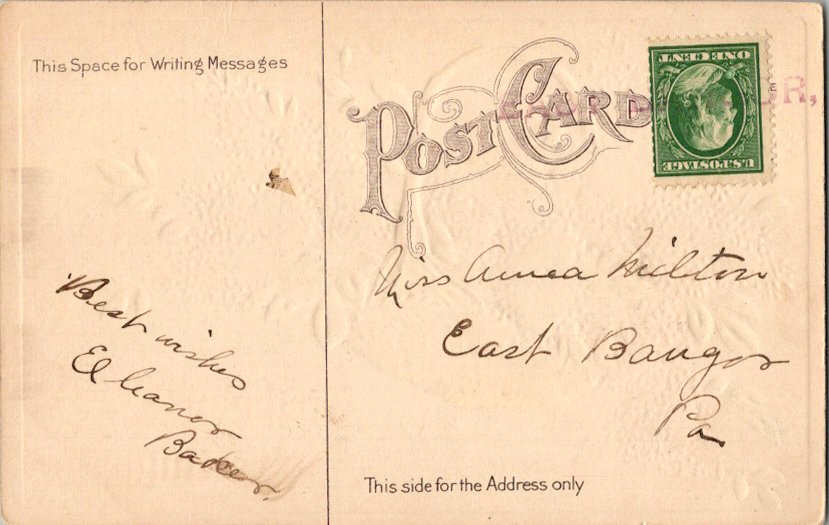 This Space for Writing Messages
POST CARD
ONE CENT
U.S. POSTAGE
R,
Best wishes
Eleanor
Baker.
Miss Anna Milton
East Bangor
Pa
This side for the Address only